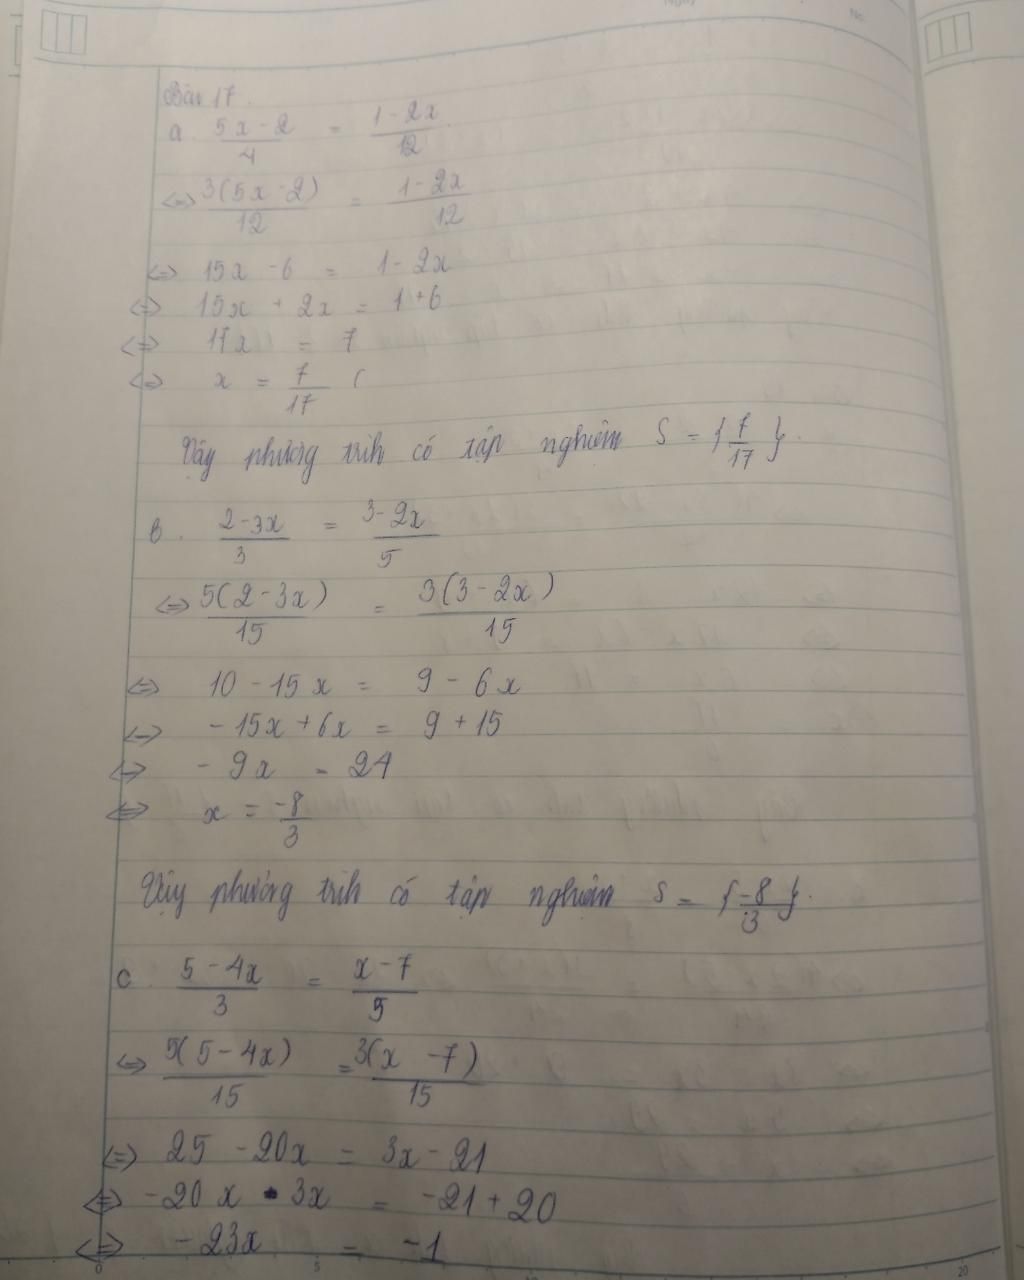 Bài 17.
a. (5x - 2)/4 = (1 - 2x)/12
<=> 3(5x - 2)/12 = (1 - 2x)/12
<=> 15x - 6 = 1 - 2x
<=> 15x + 2x = 1 + 6
<=> 17x = 7
<=> x = 7/17 (
Vậy phương trih có tập nghiêm S = {7/17}.
b. (2 - 3x)/3 = (3 - 2x)/5
<=> 5(2 - 3x)/15 = 3(3 - 2x)/15
<=> 10 - 15x = 9 - 6x
<=> -15x + 6x = 9 + 15
<=> -9x = 24
<=> x = -8/3
Vậy phương trih có tập nghiệm S = {-8/3}.
c. (5 - 4x)/3 = (x - 7)/5
<=> 5(5 - 4x)/15 = 3(x - 7)/15
<=> 25 - 20x = 3x - 21
<=> -20x - 3x = -21 + 20
<=> -23x = -1
0 5 20